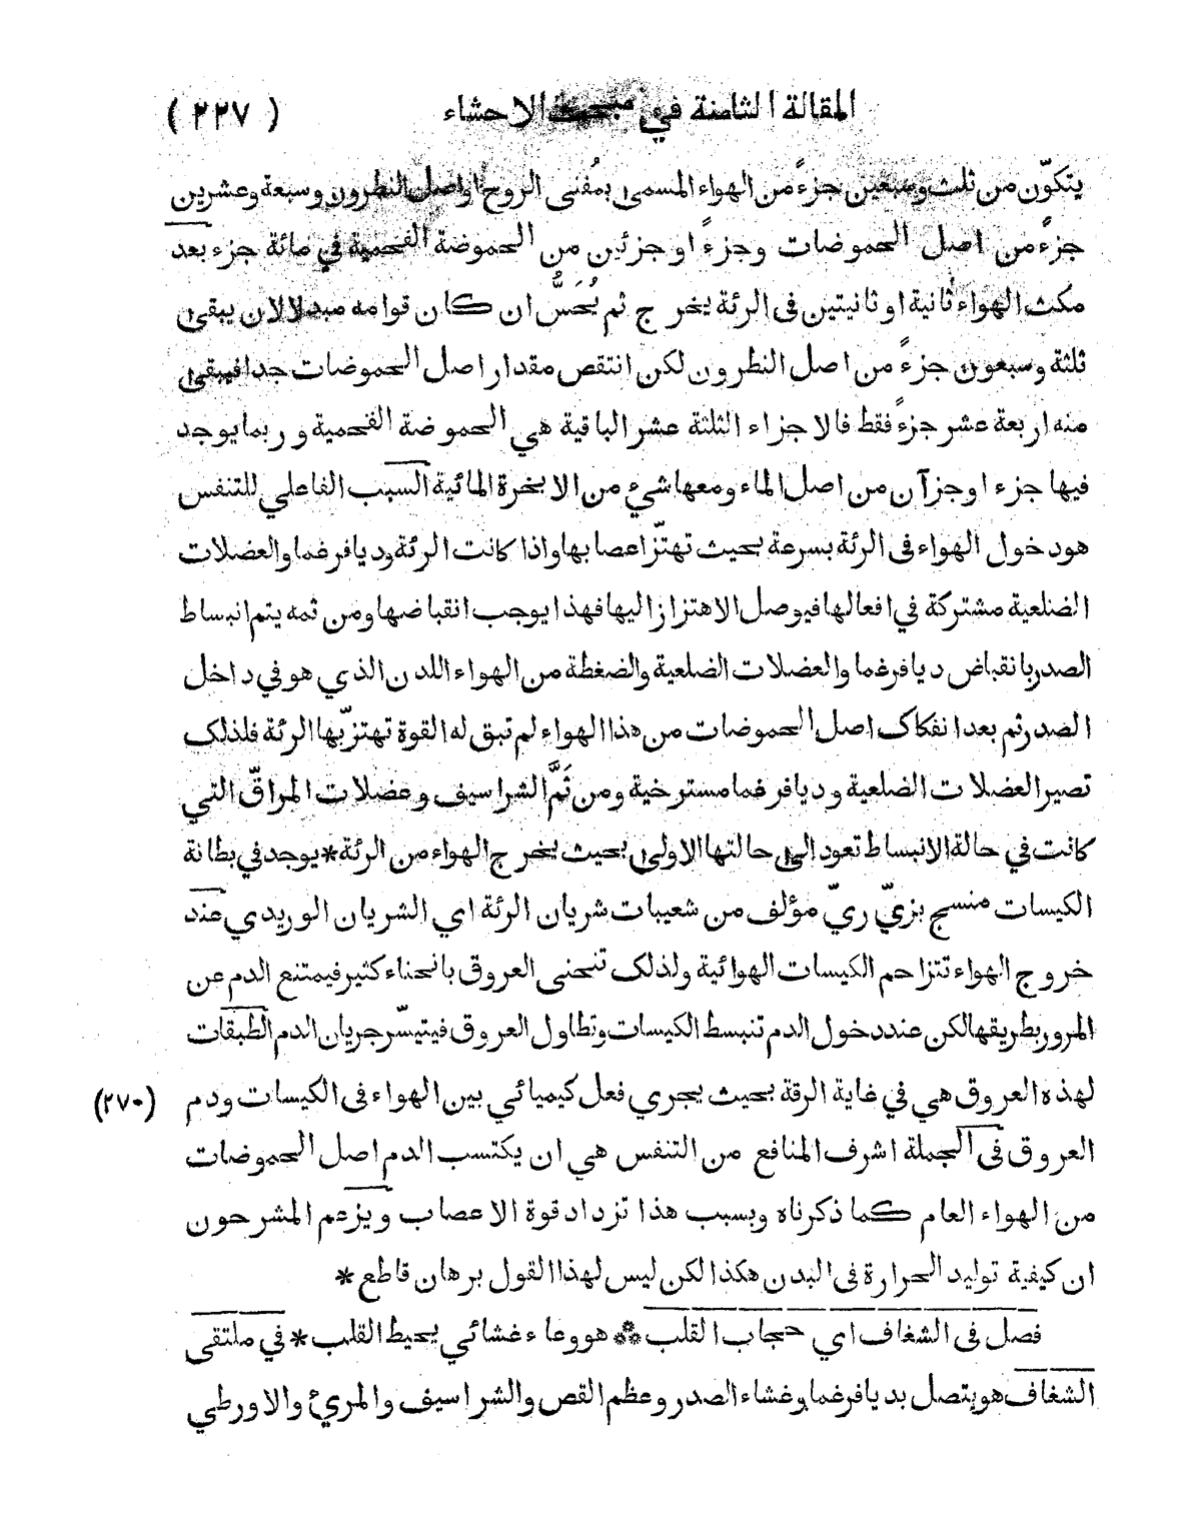 المقالة الثامنة في مبحث الاحشاء (٢٢٧)
يتكوّن من ثلث وسبعين جزءً من الهواء المسمى بمُفنى الروح او اصل النطرون وسبعة وعشرين
جزءً من اصل الحموضات وجزءً او جزئين من الحموضة الفحمية في مائة جزء بعد
مكث الهواء ثانية او ثانيتين فى الرئة يخرج ثم يُحَسُّ ان كان قوامه مبدلا لان يبقى
ثلثة وسبعون جزءً من اصل النطرون لكن انتقص مقدار اصل الحموضات جدا فيبقى
منه اربعة عشر جزءً فقط فالاجزاء الثلثة عشر الباقية هي الحموضة الفحمية وربما يوجد
فيها جزء او جزآن من اصل الماء ومعها شيء من الابخرة المائية السبب الفاعلي للتنفس
هو دخول الهواء فى الرئة بسرعة بحيث تهتزّ اعصابها واذا كانت الرئة وديافرغما والعضلات
الضلعية مشتركة في افعالها فيوصل الاهتزاز اليها فهذا يوجب انقباضها ومن ثمه يتم انبساط
الصدر بانقباض ديافرغما والعضلات الضلعية والضغطة من الهواء اللدن الذي هو في داخل
الصدر ثم بعد انفكاك اصل الحموضات من هذا الهواء لم تبق له القوة تهتزّ بها الرئة فلذلك
تصير العضلات الضلعية وديافرغما مسترخية ومن ثَمَّ الشراسيف وعضلات المراقّ التي
كانت في حالة الانبساط تعود الى حالتها الاولى بحيث يخرج الهواء من الرئة * يوجد في بطانة
الكيسات منسج بزيّ ريّ مؤلف من شعيبات شريان الرئة اي الشريان الوريدي عند
خروج الهواء تتزاحم الكيسات الهوائية ولذلك تنحنى العروق بانحناء كثير فيمتنع الدم عن
المرور بطريقها لكن عند دخول الدم تنبسط الكيسات وتطاول العروق فيتيسّر جريان الدم الطبقات
لهذه العروق هي في غاية الرقة بحيث يجري فعل كيميائي بين الهواء فى الكيسات ودم (٢٧٠)
العروق فى الجملة اشرف المنافع من التنفس هي ان يكتسب الدم اصل الحموضات
من الهواء العام كما ذكرناه وبسبب هذا تزداد قوة الاعصاب ويزعم المشرحون
ان كيفية توليد الحرارة فى البدن هكذا لكن ليس لهذا القول برهان قاطع *
فصل فى الشغاف اي حجاب القلب ** هو وعاء غشائي يحيط القلب * في ملتقى
الشغاف هو يتصل بديافرغما وغشاء الصدر وعظم القص والشراسيف والمرئ والاورطي